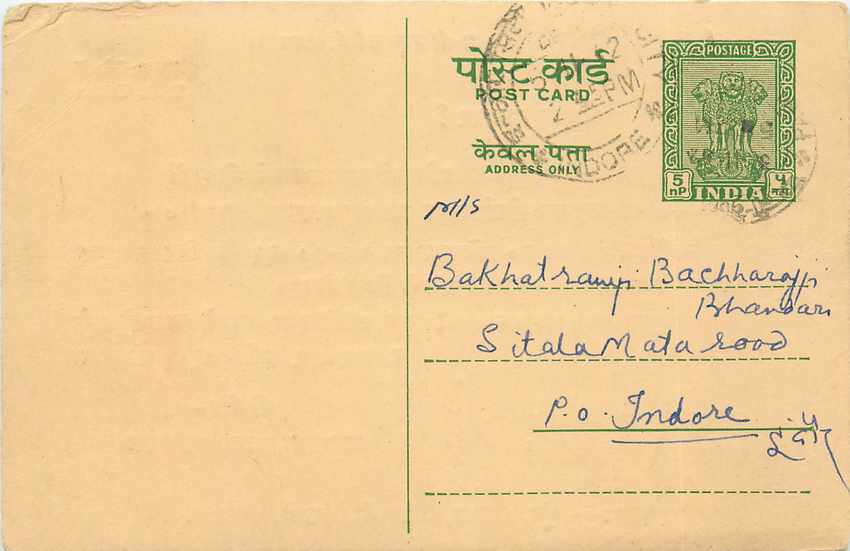 पोस्ट कार्ड
POST CARD
केवल पत्ता
ADDRESS ONLY
POSTAGE
5 nP
INDIA
५ न.पै.
INDORE
M/s
Bakhatramji Bachharajji
Bhandari
Sitala Mata road
P.O. Indore
इंदौर